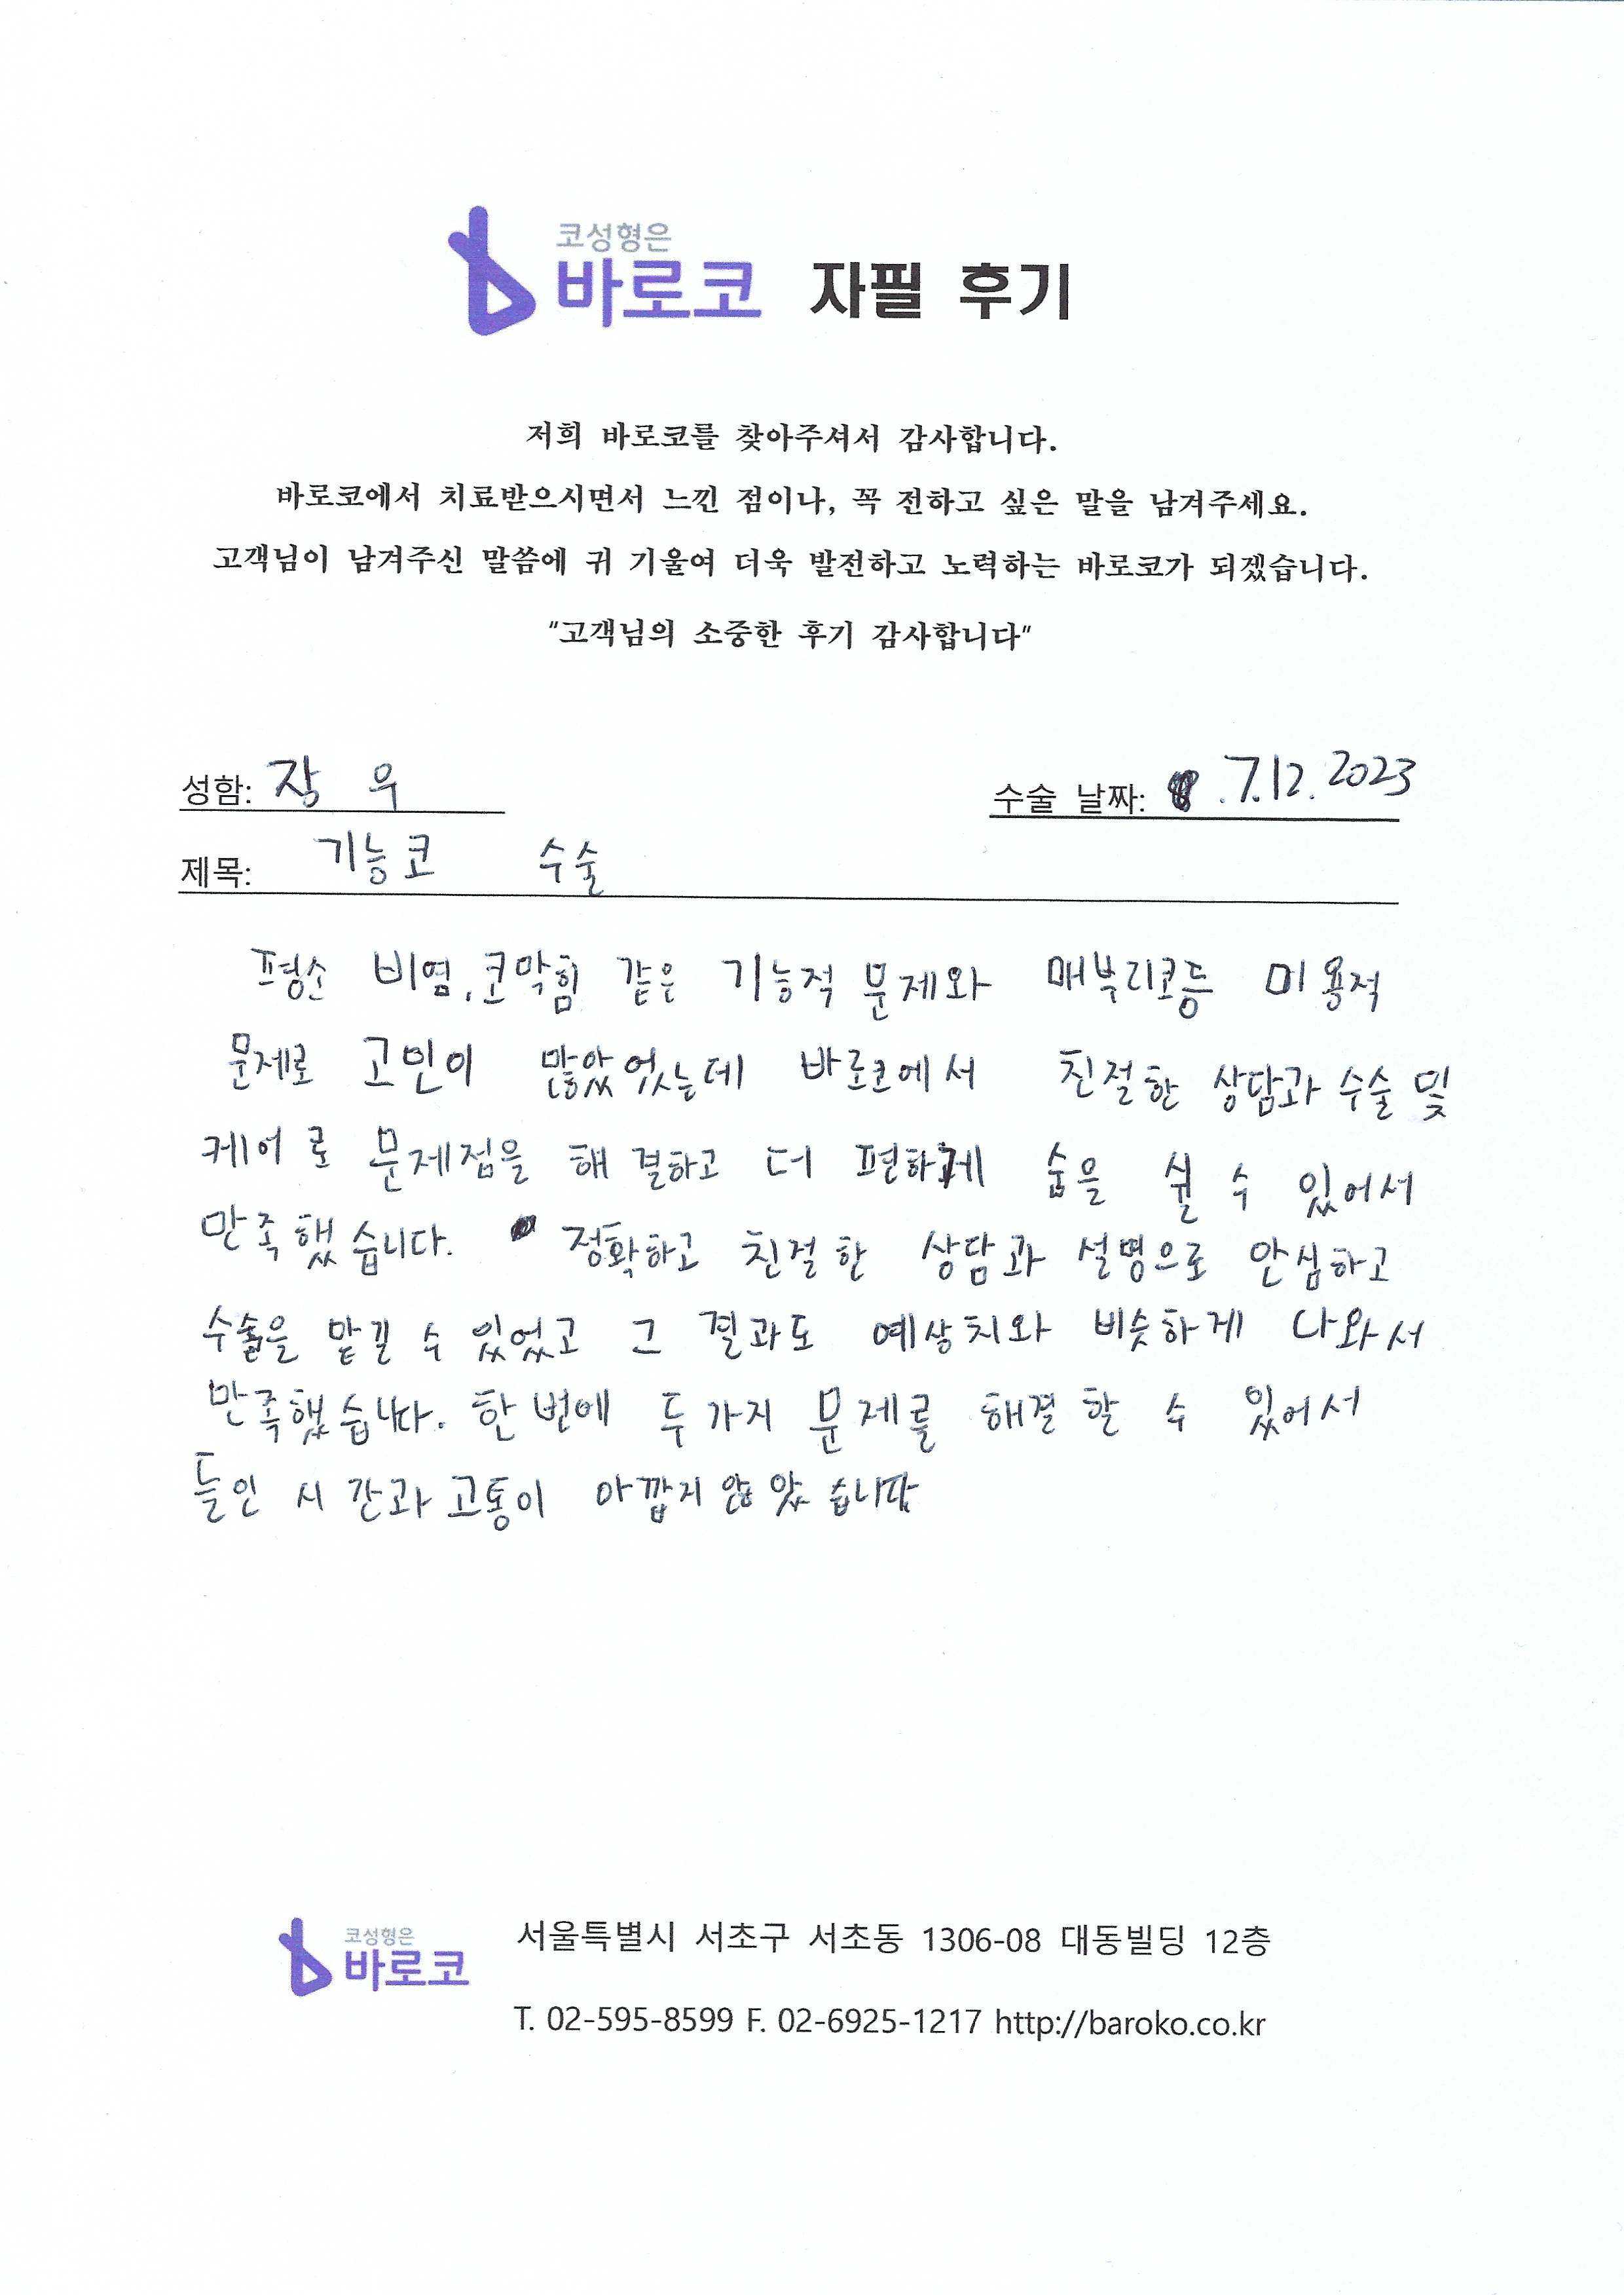 코성형은
바로코 자필 후기
저희 바로코를 찾아주셔서 감사합니다.
바로코에서 치료받으시면서 느낀 점이나, 꼭 전하고 싶은 말을 남겨주세요.
고객님이 남겨주신 말씀에 귀 기울여 더욱 발전하고 노력하는 바로코가 되겠습니다.
"고객님의 소중한 후기 감사합니다"
성함: 장 우 수술 날짜: .7.12.2023
제목: 기능코 수술
평소 비염,코막힘 같은 기능적 문제와 매부리코등 미용적
문제로 고민이 많았었는데 바로코에서 친절한 상담과 수술 및
케어로 문제점을 해결하고 더 편하게 숨을 쉴 수 있어서
만족했습니다. 정확하고 친절한 상담과 설명으로 안심하고
수술을 맡길 수 있었고 그 결과도 예상치와 비슷하게 나와서
만족했습니다. 한번에 두가지 문제를 해결할 수 있어서
들인 시간과 고통이 아깝지 않았습니다
코성형은
바로코
서울특별시 서초구 서초동 1306-08 대동빌딩 12층
T. 02-595-8599 F. 02-6925-1217 http://baroko.co.kr